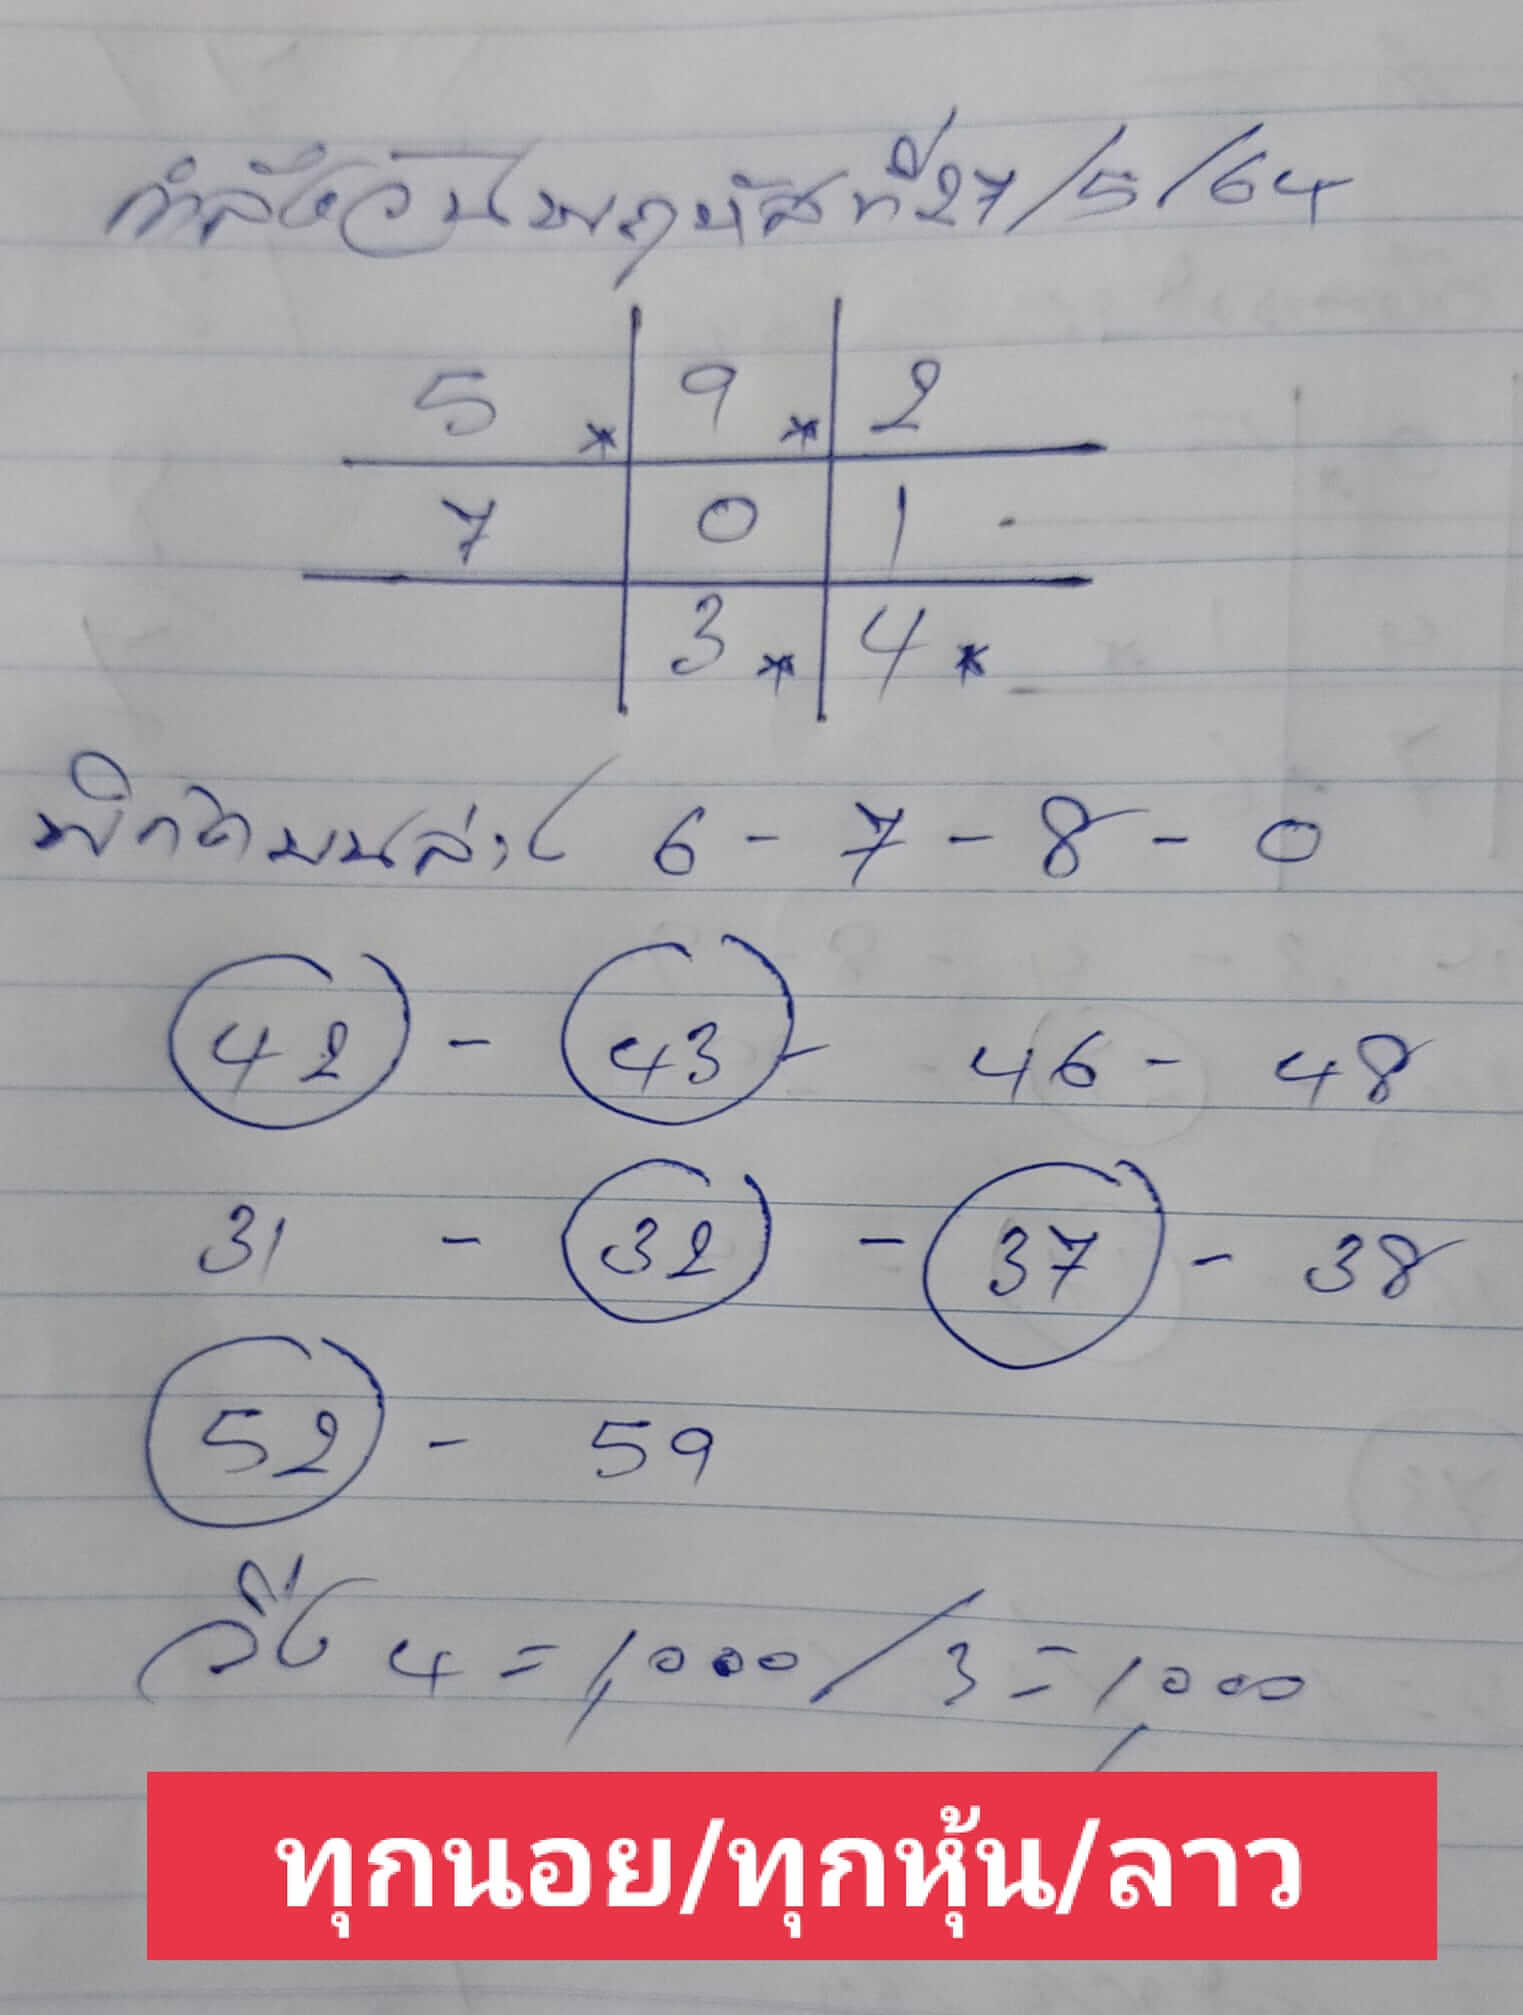 กำลังวันพฤหัสที่ 27/5/64
5 * 9 * 2
7 0 1
3 * 4 *
พิกัดบนล่าง 6 - 7 - 8 - 0
42 - 43 - 46 - 48
31 - 32 - 37 - 38
52 - 59
วิ่ง 4 = 1,000 / 3 = 1,000
ทุกนอย/ทุกหุ้น/ลาว